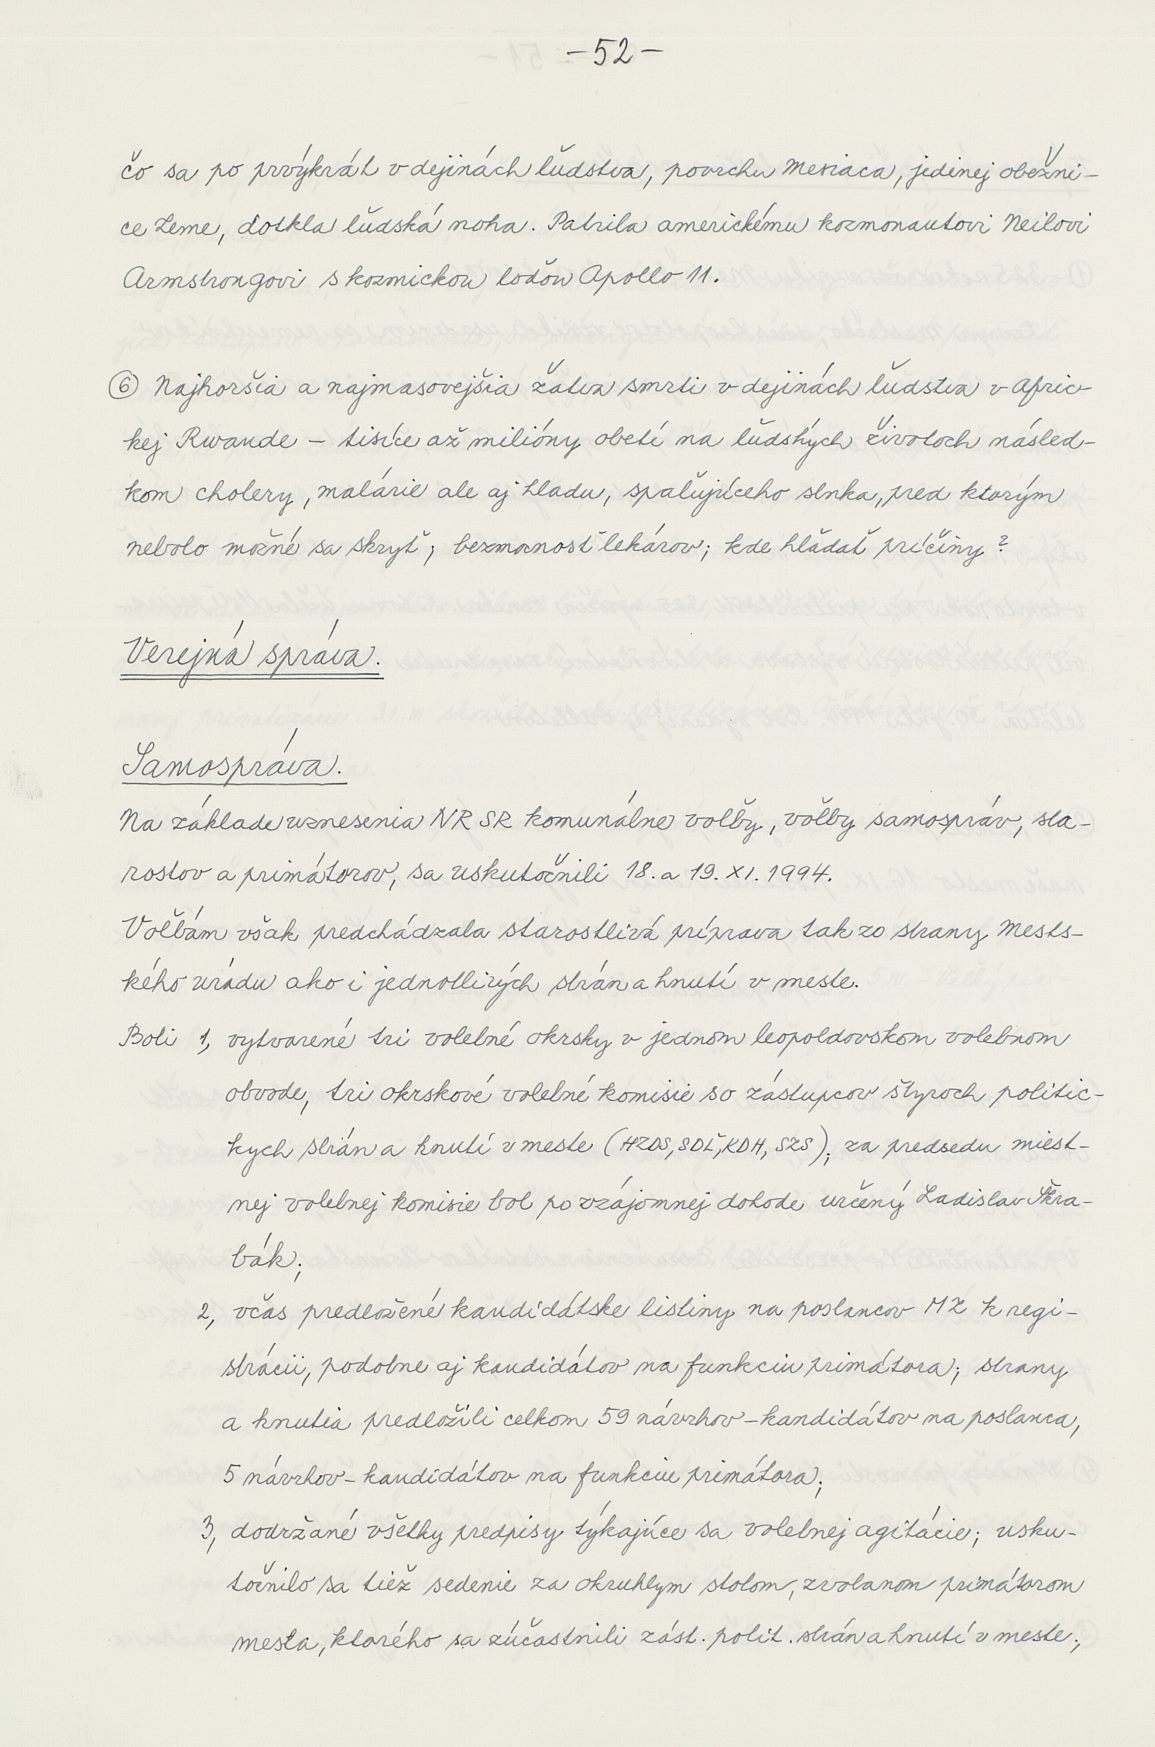 -52-
čo sa po prvýkrát v dejinách ľudstva, povrchu Mesiaca, jedinej obežni-
ce Zeme, dotkla ľudská noha. Patrila americkému kozmonautovi Neilovi
Armstrongovi s kozmickou loďou Apollo 11.
⑥ Najhoršia a najmasovejšia žatva smrti v dejinách ľudstva v afric-
kej Rwande - tisíce až milióny obetí na ľudských životoch násled-
kom cholery, malárie ale aj hladu, spaľujúceho slnka, pred ktorým
nebolo možné sa skryť; bezmocnosť lekárov; kde hľadať príčiny?
Verejná správa.
Samospráva.
Na základe uznesenia NR SR komunálne voľby, voľby samospráv, sta-
rostov a primátorov, sa uskutočnili 18. a 19. XI. 1994.
Voľbám však predchádzala starostlivá príprava tak zo strany Mests-
kého úradu ako i jednotlivých strán a hnutí v meste.
Boli 1, vytvorené tri volebné okrsky v jednom leopoldovskom volebnom
obvode, tri okrskové volebné komisie so zástupcov štyroch politic-
kych strán a hnutí v meste (HZDS, SDĽ, KDH, SZS); za predsedu miest-
nej volebnej komisie bol po vzájomnej dohode určený Ladislav Škra-
bák;
2, včas predložené kandidátske listiny na poslancov MZ k regi-
strácii, podobne aj kandidátov na funkciu primátora; strany
a hnutia predložili celkom 59 návrhov - kandidátov na poslanca,
5 návrhov - kandidátov na funkciu primátora;
3, dodržané všetky predpisy týkajúce sa volebnej agitácie; usku-
točnilo sa tiež sedenie za okruhlym stolom, zvolanom primátorom
mesta, ktorého sa zúčastnili zást. polit. strán a hnutí v meste;